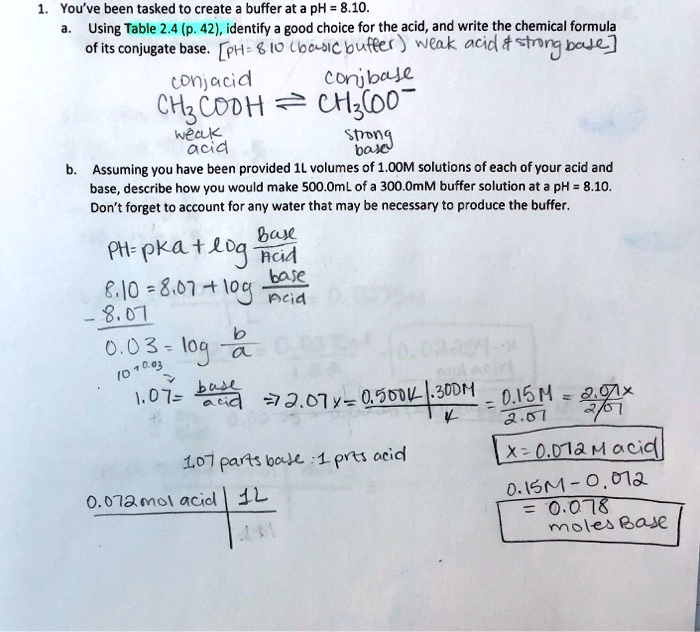 1. You've been tasked to create a buffer at a pH = 8.10.
a. Using Table 2.4 (p. 42), identify a good choice for the acid, and write the chemical formula
of its conjugate base. [pH= 8.10 (basic buffer) weak acid & strong base]
conj acid conj base
CH3COOH ⇌ CH3COO⁻
weak acid strong base
b. Assuming you have been provided 1L volumes of 1.00M solutions of each of your acid and
base, describe how you would make 500.0mL of a 300.0mM buffer solution at a pH = 8.10.
Don't forget to account for any water that may be necessary to produce the buffer.
PH= pka + log Base/Acid
8.10 = 8.07 + log base/Acid
- 8.07
0.03 = log b/a
10^0.03
1.07 = base/acid ⇒ 2.07x = 0.500L | .300M / L = 0.15M/2.07 = 2.07x/2.07
1.07 parts base : 1 prts acid
x = 0.072 M acid
0.15M - 0.072
= 0.078 moles Base
0.072 mol acid | 1L
| 1M